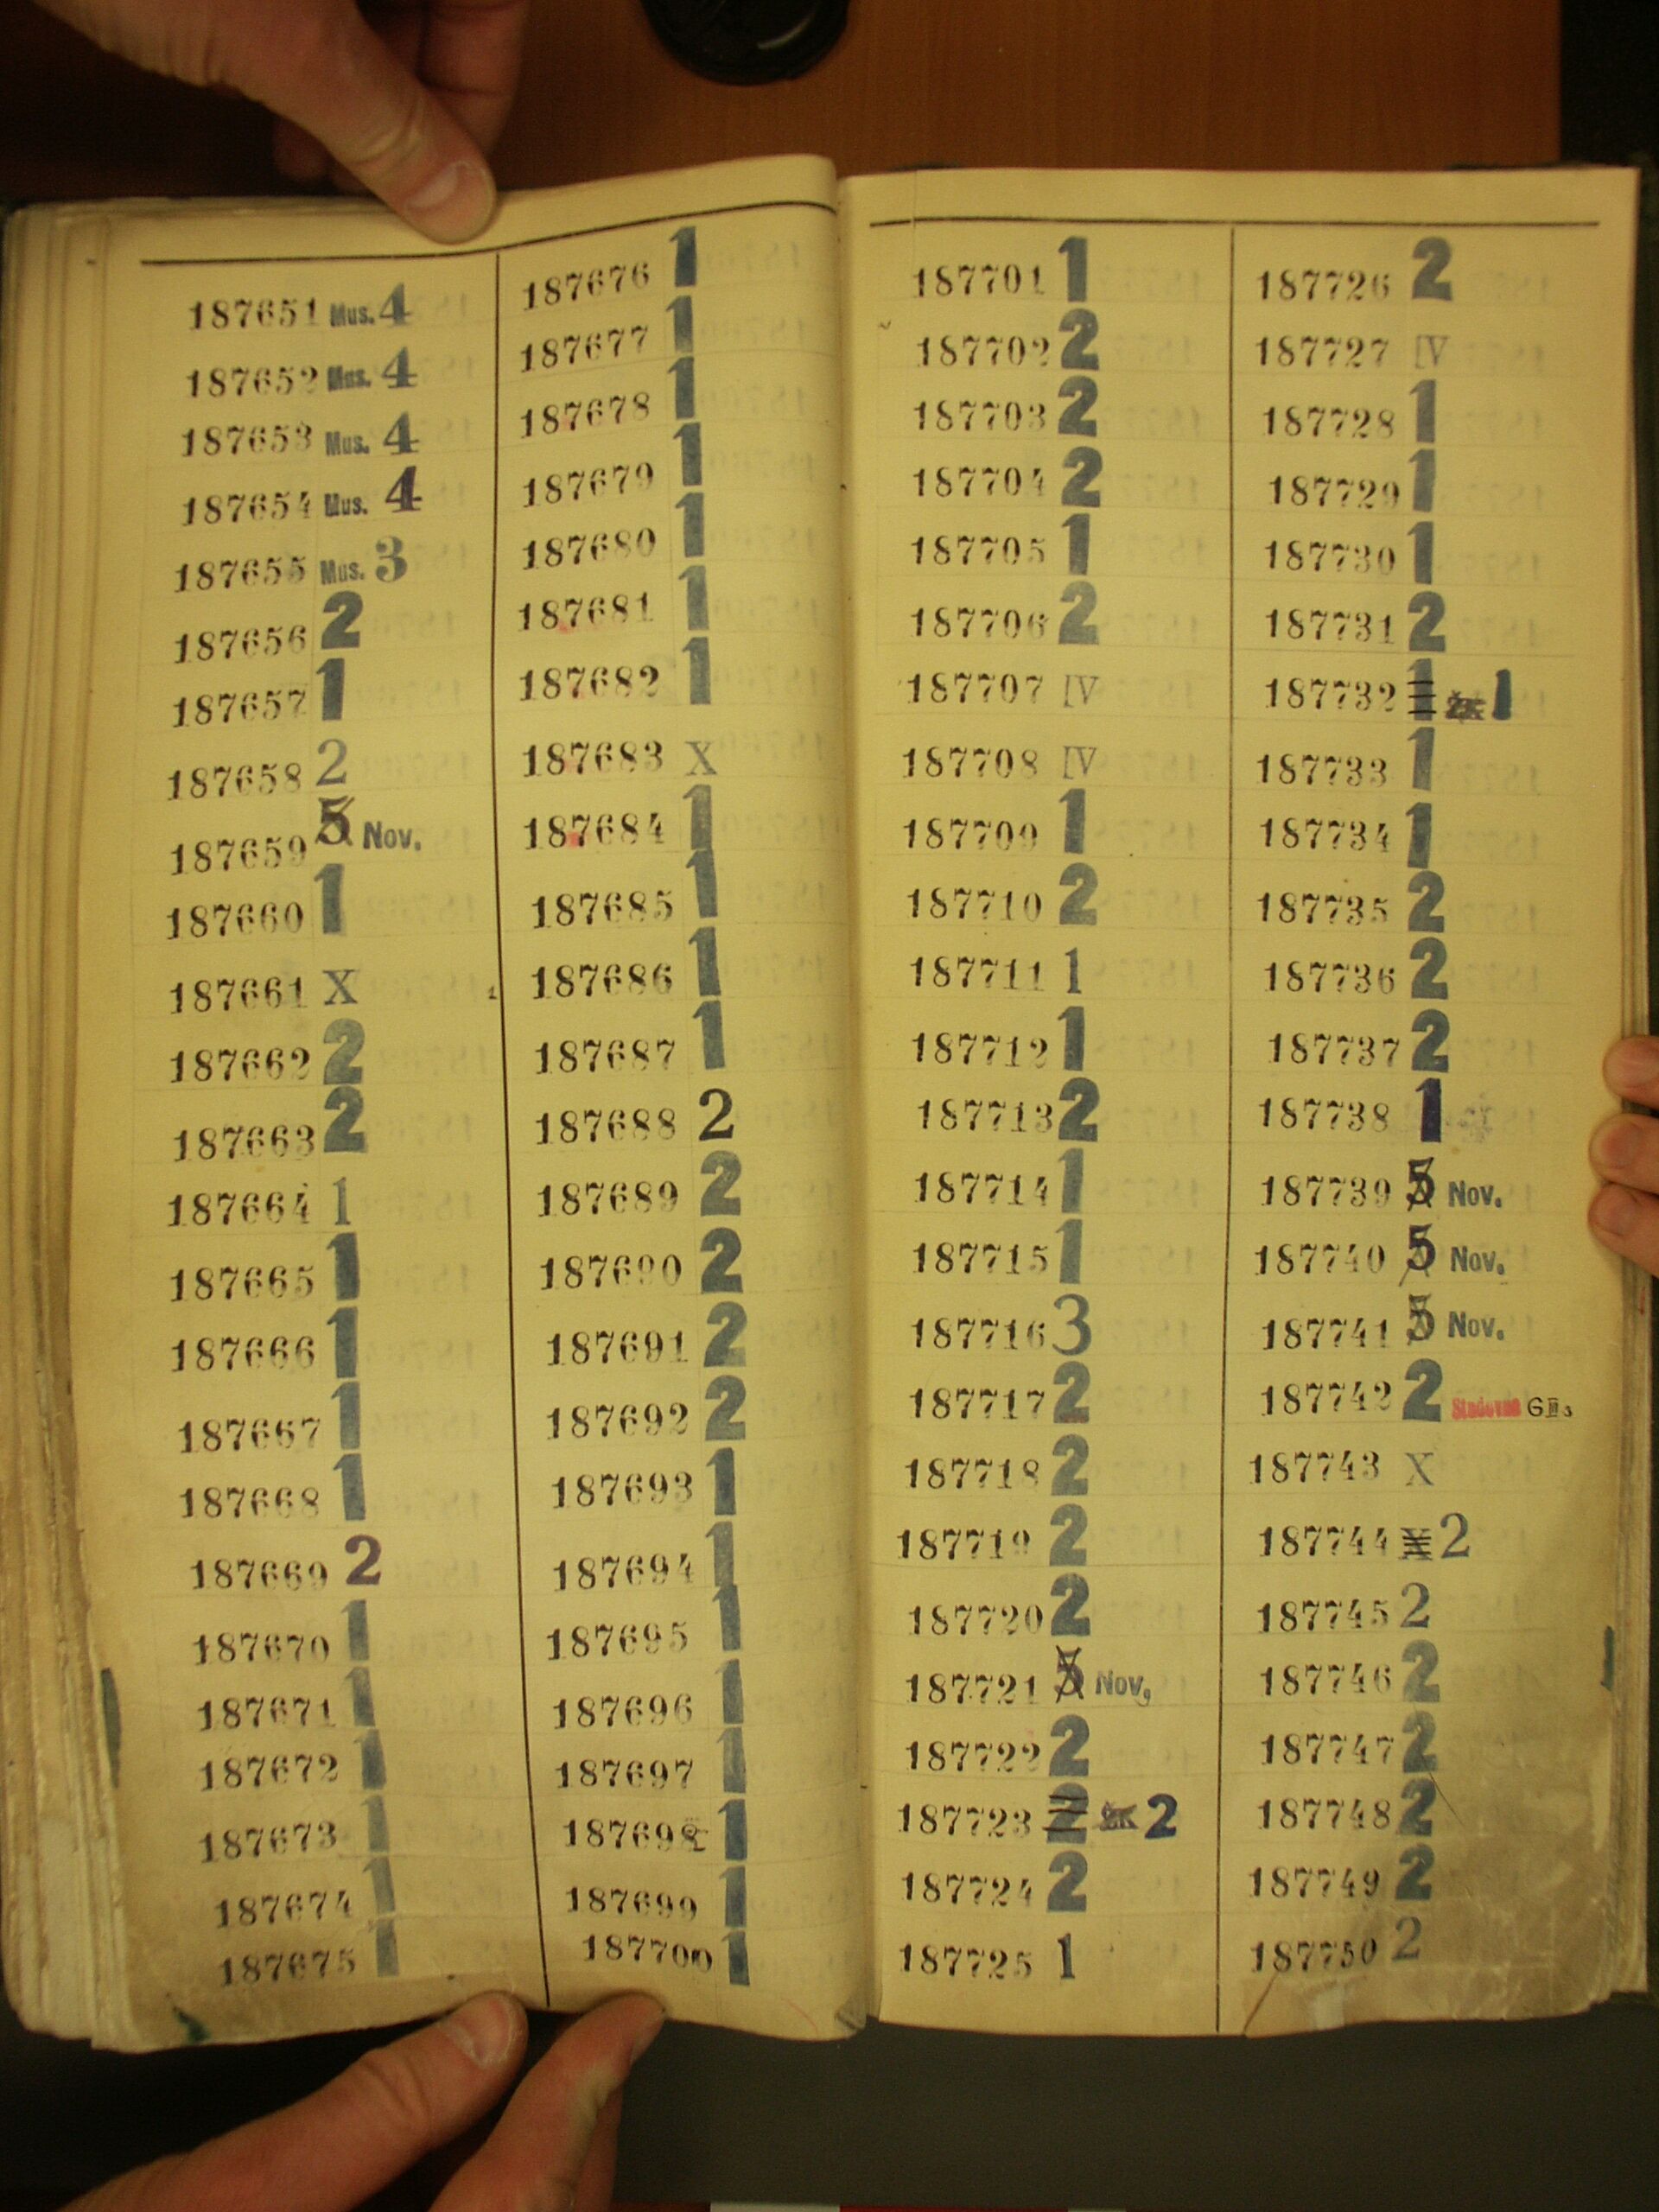 187651 Mus. 4
187652 Mus. 4
187653 Mus. 4
187654 Mus. 4
187655 Mus. 3
187656 2
187657 1
187658 2
187659 5 Nov.
187660 1
187661 X
187662 2
187663 2
187664 1
187665 1
187666 1
187667 1
187668 1
187669 2
187670 1
187671 1
187672 1
187673 1
187674 1
187675 1
187676 1
187677 1
187678 1
187679 1
187680 1
187681 1
187682 1
187683 X
187684 1
187685 1
187686 1
187687 1
187688 2
187689 2
187690 2
187691 2
187692 2
187693 1
187694 1
187695 1
187696 1
187697 1
187698 1
187699 1
187700 1
187701 1
187702 2
187703 2
187704 2
187705 1
187706 2
187707 IV
187708 IV
187709 1
187710 2
187711 1
187712 1
187713 2
187714 1
187715 1
187716 3
187717 2
187718 2
187719 2
187720 2
187721 5 Nov.
187722 2
187723 2 2
187724 2
187725 1
187726 2
187727 IV
187728 1
187729 1
187730 1
187731 2
187732 1 1
187733 1
187734 1
187735 2
187736 2
187737 2
187738 1
187739 5 Nov.
187740 5 Nov.
187741 5 Nov.
187742 2
187743 X
187744 X 2
187745 2
187746 2
187747 2
187748 2
187749 2
187750 2